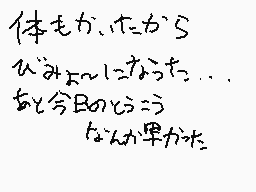 体もかいたから
びみょ〜になった...
あと今日のとうこう
なんか早かった